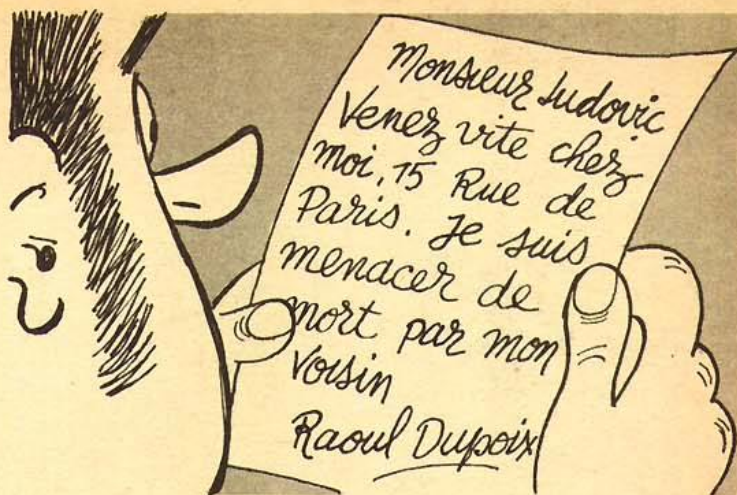 Monsieur Ludovic
Venez vite chez
moi, 15 Rue de
Paris. Je suis
menacer de
mort par mon
Voisin
Raoul Dupoix